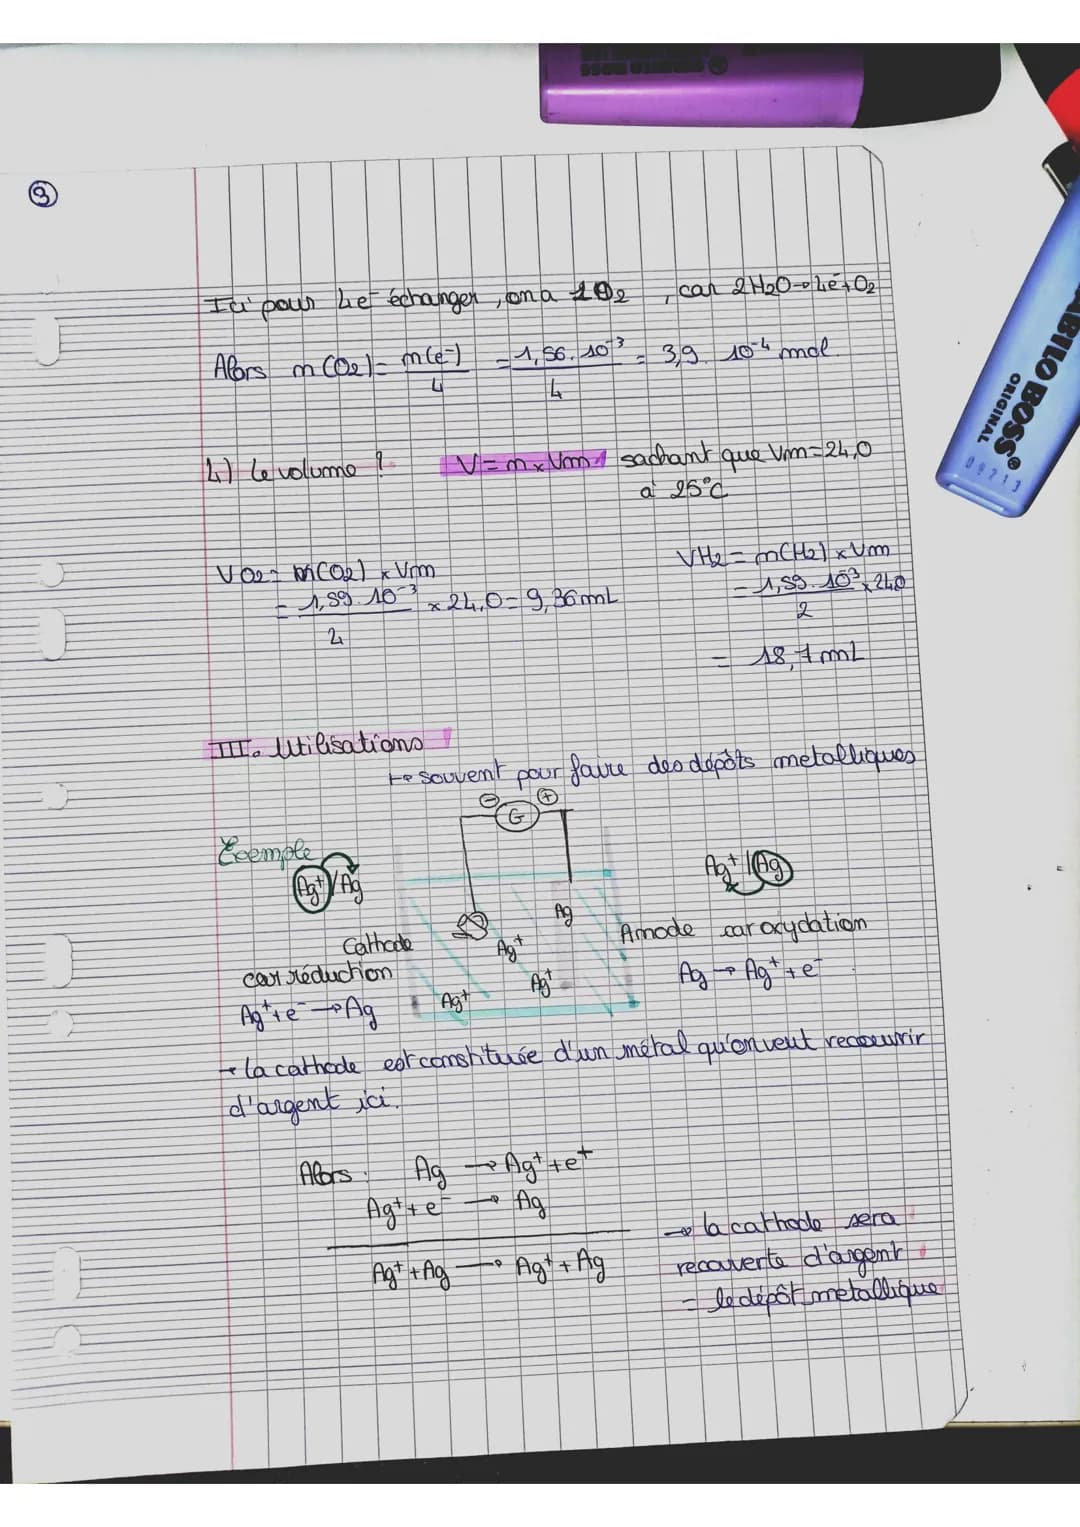 ③
Ici pour 4e⁻ échanger, on a 1O2, car 2H2O→4e⁻+O2
Alors n(O2)= n(e⁻)/4 = 1,56.10⁻³/4 = 3,9.10⁻⁴ mol.
4) Le volume ? V=n×Vm sachant que Vm=24,0
à 25°C
VO2= n(O2)×Vm
= 1,59.10⁻³/4 ×24,0=9,36mL
VH2= n(H2)×Vm
= 1,59.10⁻³/2 ×24,0
= 18,7mL
III. Utilisations
↳ souvent pour faire des dépôts metalliques
⊖ G ⊕
Exemple
Ag⁺/Ag
Ag⁺/Ag
Cathode
car réduction
Ag⁺+e⁻→Ag
Ag
Ag⁺
Ag⁺
Ag⁺
Anode car oxydation
Ag→Ag⁺+e⁻
→ la cathode est constituée d'un métal qu'on veut recouvrir
d'argent ici.
Alors : Ag → Ag⁺+e⁺
Ag⁺+e⁻ → Ag
Ag⁺+Ag → Ag⁺+Ag
→ la cathode sera
recouverte d'argent
= le dépôt metallique
STABILO BOSS®
ORIGINAL